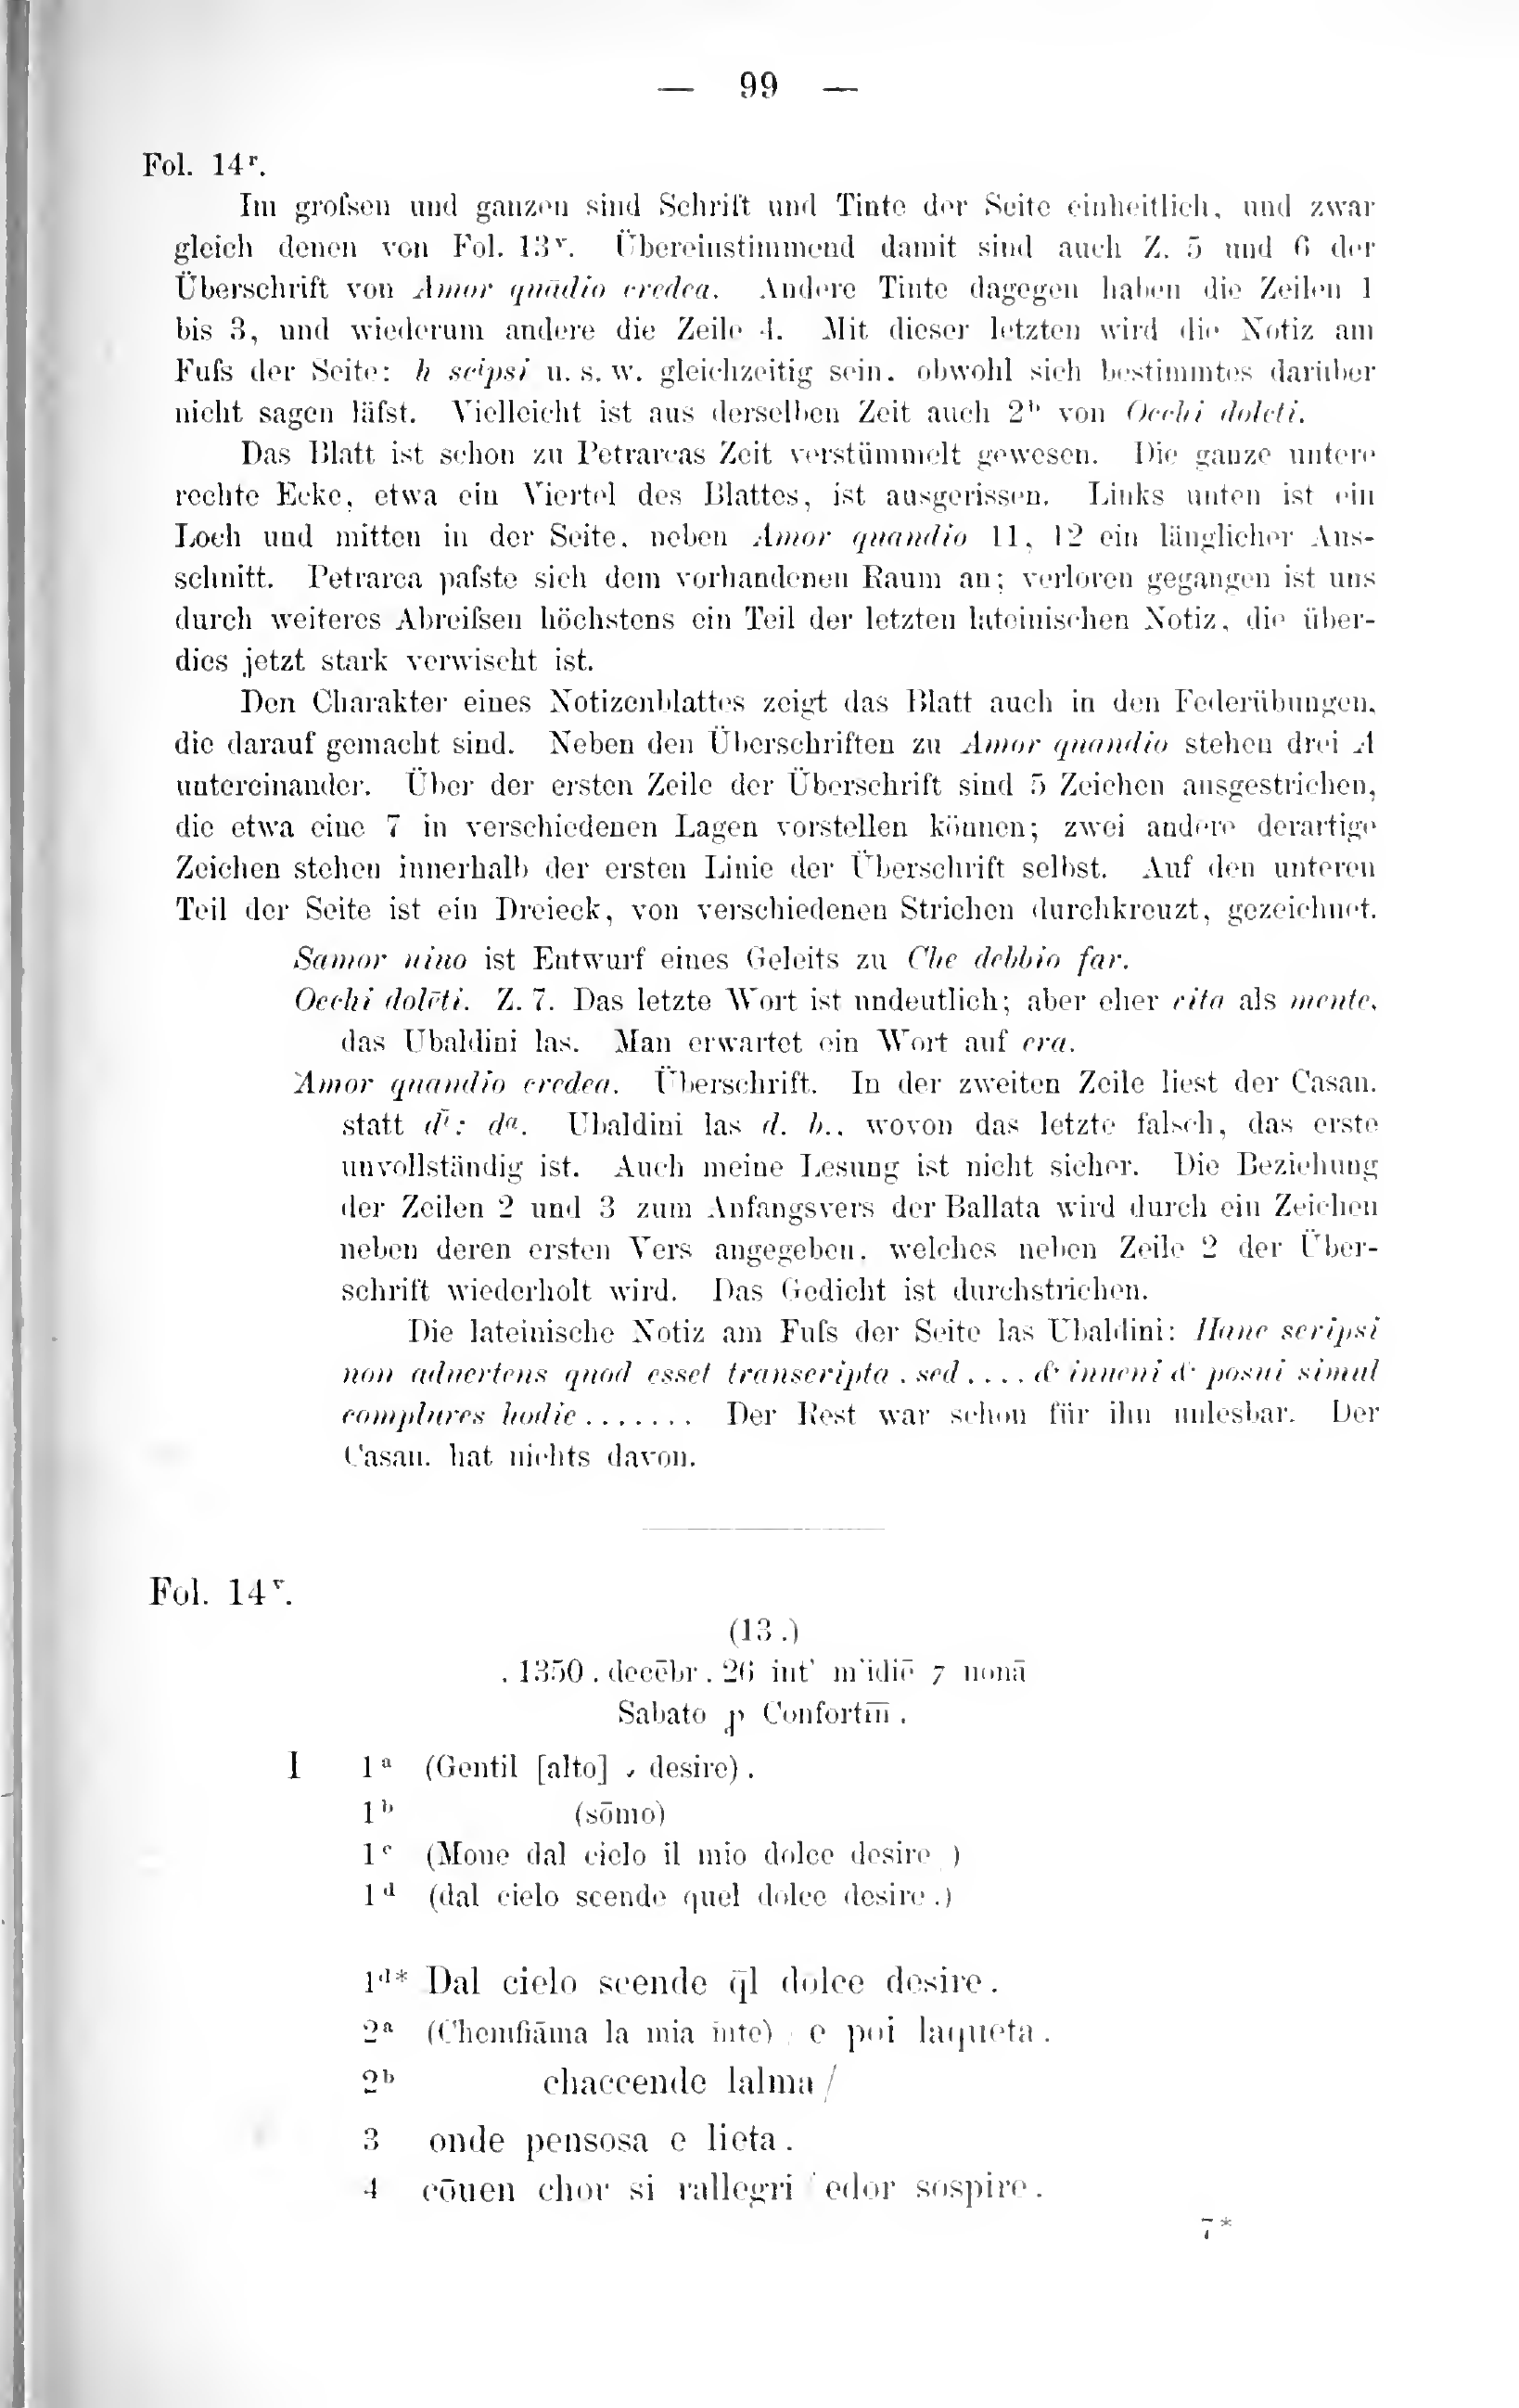 — 99 —
Fol. 14ʳ.
Im groſsen und ganzen sind Schrift und Tinte der Seite einheitlich, und zwar
gleich denen von Fol. 13ᵛ. Übereinstimmend damit sind auch Z. 5 und 6 der
Überschrift von Amor quādio credea. Andere Tinte dagegen haben die Zeilen 1
bis 3, und wiederum andere die Zeile 4. Mit dieser letzten wird die Notiz am
Fuſs der Seite: h scⁱpsi u. s. w. gleichzeitig sein, obwohl sich bestimmtes darüber
nicht sagen läſst. Vielleicht ist aus derselben Zeit auch 2ᵇ von Occhi dolēti.
Das Blatt ist schon zu Petrarcas Zeit verstümmelt gewesen. Die ganze untere
rechte Ecke, etwa ein Viertel des Blattes, ist ausgerissen. Links unten ist ein
Loch und mitten in der Seite, neben Amor quandio 11, 12 ein länglicher Aus-
schnitt. Petrarca paſste sich dem vorhandenen Raum an; verloren gegangen ist uns
durch weiteres Abreiſsen höchstens ein Teil der letzten lateinischen Notiz, die über-
dies jetzt stark verwischt ist.
Den Charakter eines Notizenblattes zeigt das Blatt auch in den Federübungen,
die darauf gemacht sind. Neben den Überschriften zu Amor quandio stehen drei A
untereinander. Über der ersten Zeile der Überschrift sind 5 Zeichen ausgestrichen,
die etwa eine 7 in verschiedenen Lagen vorstellen können; zwei andere derartige
Zeichen stehen innerhalb der ersten Linie der Überschrift selbst. Auf den unteren
Teil der Seite ist ein Dreieck, von verschiedenen Strichen durchkreuzt, gezeichnet.
Samor uiuo ist Entwurf eines Geleits zu Che debbio far.
Occhi dolēti. Z. 7. Das letzte Wort ist undeutlich; aber eher uita als mente,
das Ubaldini las. Man erwartet ein Wort auf era.
Amor quandio credea. Überschrift. In der zweiten Zeile liest der Casan.
statt : dᵃ. Ubaldini las d. h., wovon das letzte falsch, das erste
unvollständig ist. Auch meine Lesung ist nicht sicher. Die Beziehung
der Zeilen 2 und 3 zum Anfangsvers der Ballata wird durch ein Zeichen
neben deren ersten Vers angegeben, welches neben Zeile 2 der Über-
schrift wiederholt wird. Das Gedicht ist durchstrichen.
Die lateinische Notiz am Fuſs der Seite las Ubaldini: Hanc scripsi
non aduertens quod esset transcripta . sed . . . . & inueni & posui simul
complures hodie . . . . . . . Der Rest war schon für ihn unlesbar. Der
Casan. hat nichts davon.
Fol. 14ᵛ.
(13 .)
. 1350 . decēbr . 26 int' m'idiē 7 nonā
Sabato ꝑ Confortin̄ .
I 1ᵃ (Gentil [alto] , desire) .
1ᵇ (sōmo)
1ᶜ (Moue dal cielo il mio dolce desire )
1ᵈ (dal cielo scende quel dolce desire .)
1ᵈ* Dal cielo scende q̄l dolce desire .
2ᵃ (Chemfiāma la mia m̄te) e poi laqueta .
2ᵇ chaccende lalma /
3 onde pensosa e lieta .
4 cōuen chor si rallegri edor sospire .
7*